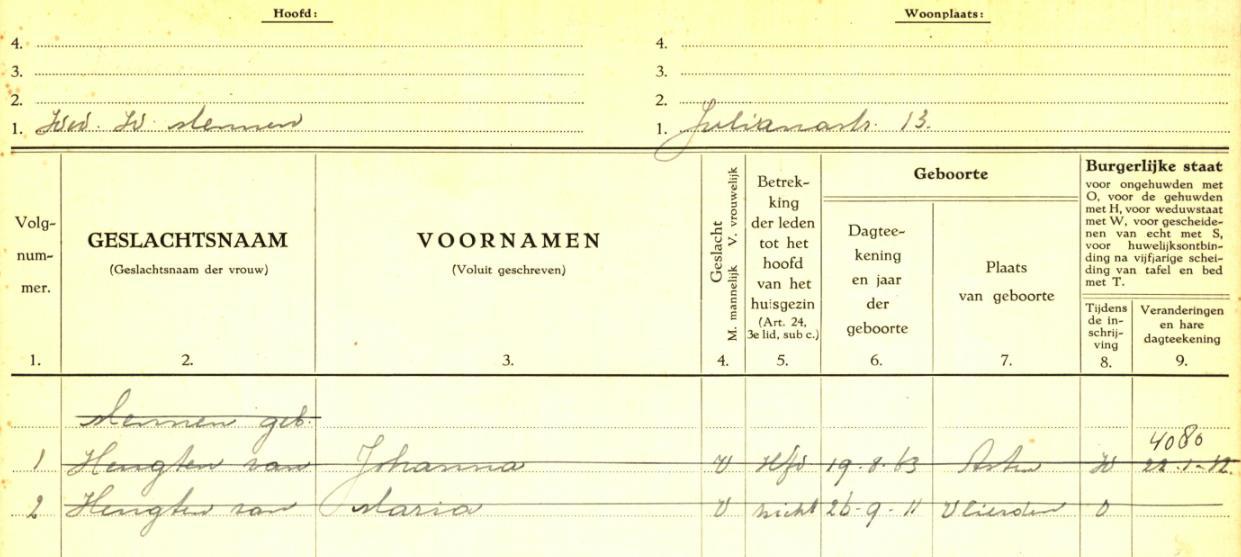 Hoofd: Woonplaats:
4. 4.
3. 3.
2. 2.
1. Wed. W. Mennen 1. Julianastr. 13.
Volg-
num-
mer.
1.
GESLACHTSNAAM
(Geslachtsnaam der vrouw)
2.
VOORNAMEN
(Voluit geschreven)
3.
Geslacht
M. mannelijk V. vrouwelijk
4.
Betrek-
king
der leden
tot het
hoofd
van het
huisgezin
(Art. 24,
3e lid, sub c.)
5.
Geboorte
Dagtee-
kening
en jaar
der
geboorte
6.
Plaats
van geboorte
7.
Burgerlijke staat
voor ongehuwden met
O, voor de gehuwden
met H, voor weduwstaat
met W, voor gescheide-
nen van echt met S,
voor huwelijksontbin-
ding na vijfjarige schei-
ding van tafel en bed
met T.
Tijdens
de in-
schrij-
ving
8.
Veranderingen
en hare
dagteekening
9.
Mennen geb.
4080
1 Hengten van Johanna V Hfd 19-8-63 Asten W 22-1-
2 Hengten van Maria V nicht 26-9-11 Vlierden O